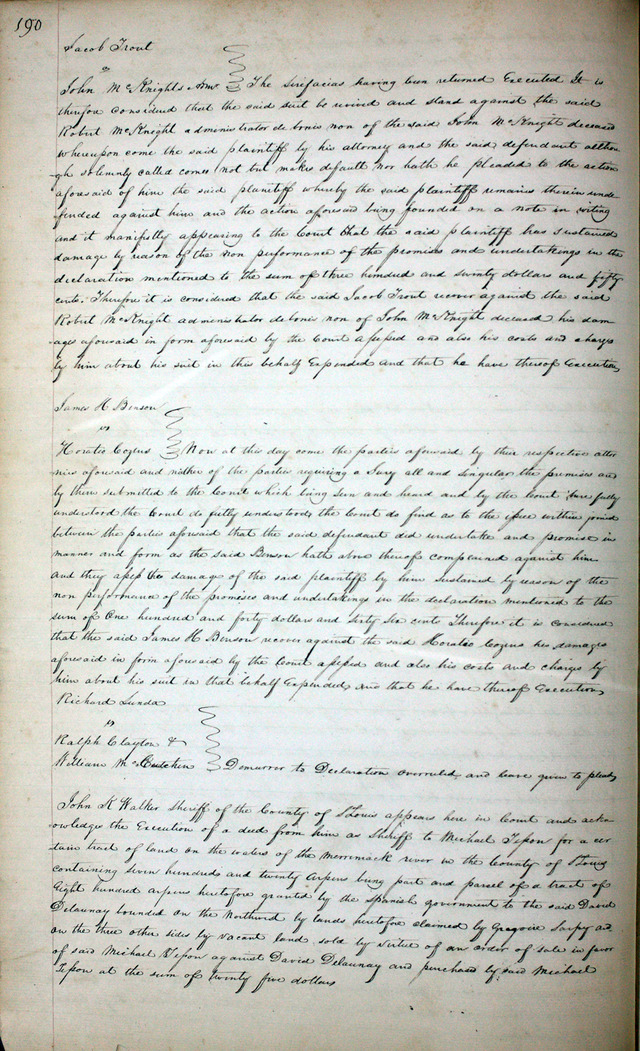 190
Jacob Trout
vs
John McKnights Admr The Scirefacias having been returned Executed It is
therefore considered that the said suit be revived and stand against the said
Robert McKnight administrator debonis non of the said John McKnight deceased
whereupon come the said plaintiff by his attorney and the said defendant altho
gh solemnly called comes not but makes default nor hath he pleaded to the action
aforesaid of him the said plaintiff whereby the said plaintiff remains therein unde
fended against him and the action aforesaid being founded on a note in writing
and it manifestly appearing to the Court that the said plaintiff has sustained
damage by reason of the non performance of the promises and undertakings in the
declaration mentioned to the sum of three hundred and seventy dollars and fifty
cents. Therefore it is considered that he said Jacob Trout recover against the said
Robert McKnight administrator debonis non of John McKnight deceased his dam
ages aforesaid in form aforesaid by the Court assessed and also his costs and charges
by him about his suit in this behalf Expended and that he have thereof Execution
James H Benson
vs
Horatio Cozens Now at this day come the parties aforesaid by their respective attor
nies aforesaid and neither of the parties requiring a Jury all and singular the premises are
by them submitted to the Court which being seen and heard and by the Court fully
understood the Court do find as to the issue within joined
between the parties aforesaid that the said defendant did undertake and promise in
manner and form as the said Benson hath above thereof complained against him
And they assess the damage of the said plaintiff by him sustained by reason of the
non performance of the promises and undertakings in the declaration mentioned to the
sum of One hundred and forty dollars and sixty six cents Therefore it is considered
that the said James H Benson recover against the said Horatio Cozens his damages
aforesaid in form aforesaid by the Court assessed and also his costs and charges by
him about his suit in that behalf Expended, and that he have thereof Execution
Richard Lunda
vs
Ralph Clayton &
William Mc Demurrer to Declaration overruled and leave given to plead
John K Walker Sheriff of the County of St Louis appears here in Court and ackn
owledges the Execution of a deed from him as Sheriff to Michael Tesson for a cer
tain tract of land on the waters of the Merrimack river in the County of St Louis
containing seven hundred and twenty Arpens being part and parcel of a tract of
Eight hundred arpens heretofore granted by the Spanish government to the said David
Delaunay bounded on the Northwd by lands heretofore claimed by Gregoire Sarpy and
on the three other sides by vacant land, sold by virtue of an order of sale in favor
of said Michael Tesson against David Delaunay and purchased by said Michael
Tesson at the sum of twenty five dollars